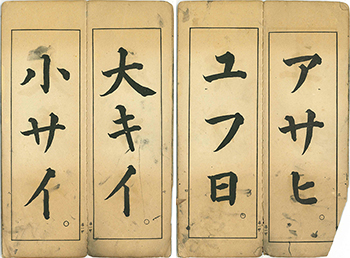 アサヒ
ユフ日
大キイ
小サイ